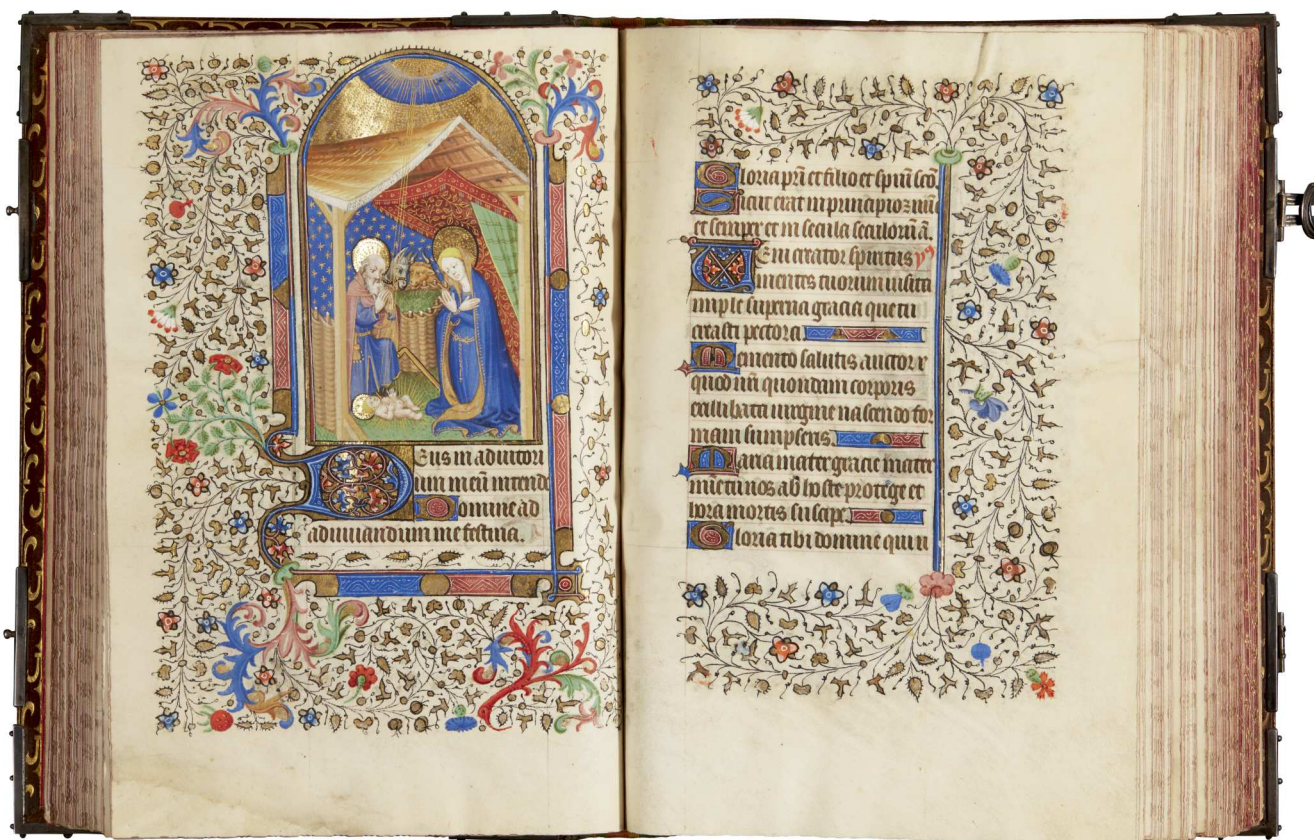 Eus in adiutori
um meū intende
Domine ad
adiuuandum me festina.
Gloria pr̄i et filio et spiritui sc̄o.
Sicut erat in principio ⁊ nūc
et semper et in secula seculorū ā.
Veni creator spiritus
mentes tuorum uisita
imple superna gracia que tu
creasti pectora
Memento salutis auctor
quod nr̄i quondam corporis
ex illibata uirgine nascendo for
mam sumpseris.
Maria mater gracie mater
mie tu nos ab hoste protege et
hora mortis suscipe
Gloria tibi domine qui n